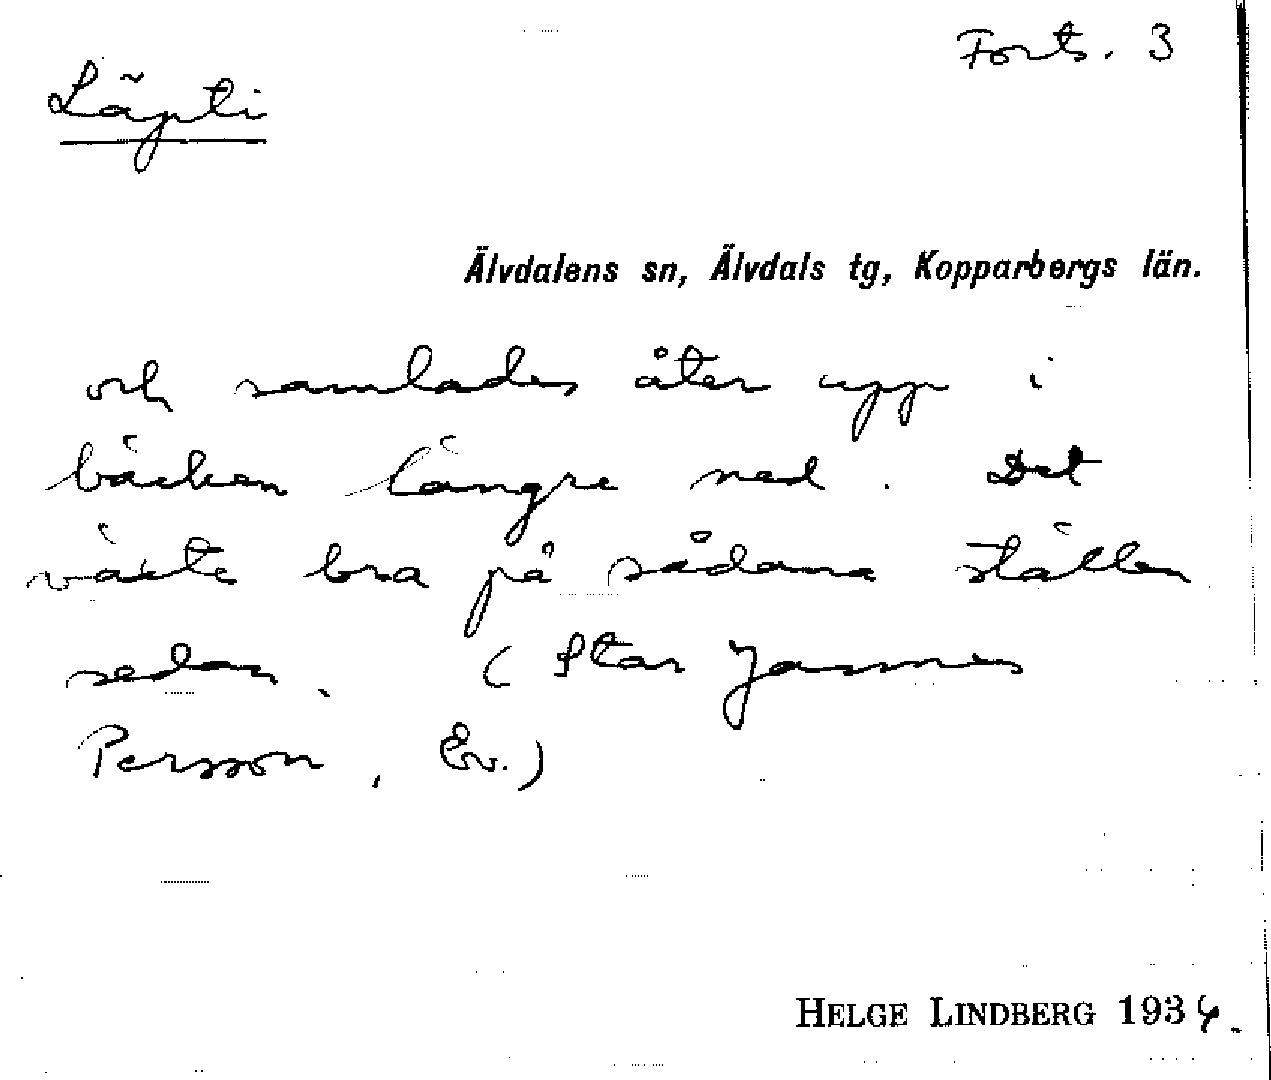 Forts. 3
Läpti
Älvdalens sn, Älvdals tg, Kopparbergs län.
och samlades åter upp i
bäcken längre ned. Det
växte bra på sådana ställen
sedan. (Star Jannes
Persson, Ev.)
HELGE LINDBERG 193